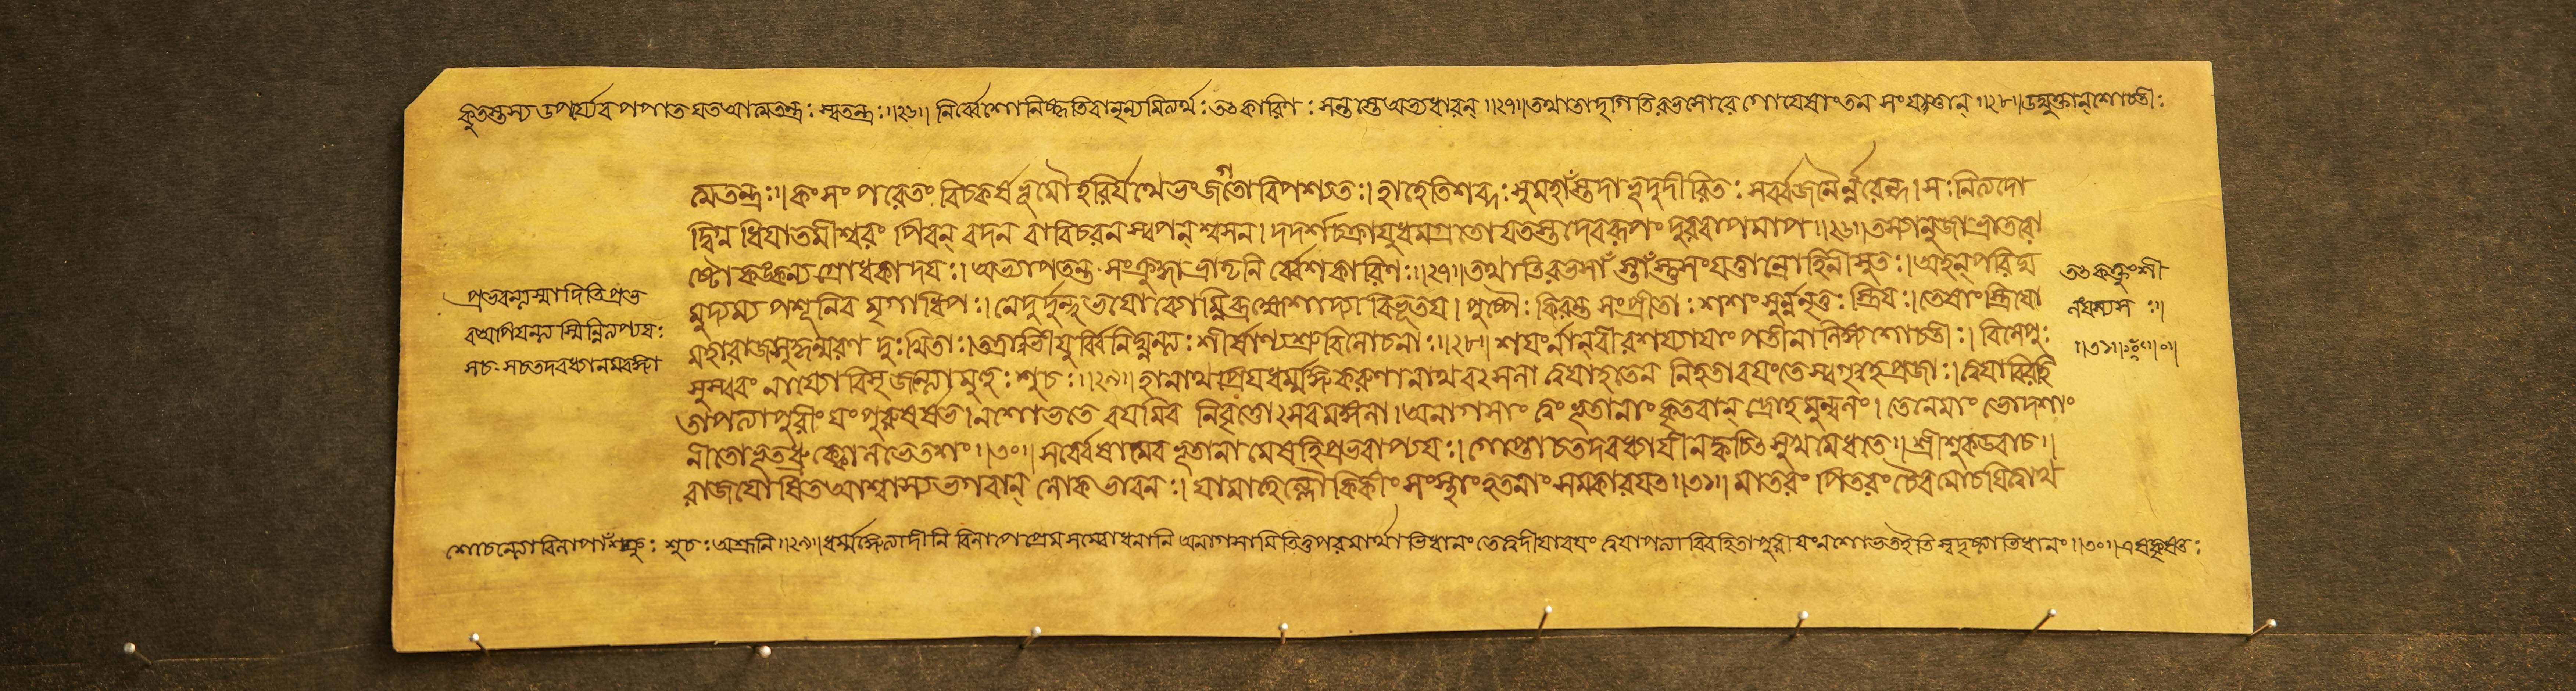 কুতস্তস্য উপর্য্যেব পপাত যত আত্মতন্ত্র: স্বতন্ত্র: ॥২৬॥ নির্ব্বেশো নিষ্কৃতিরানৃন্যমিত্যর্থ: তৎ কারিণ: সন্তস্তে অভ্যধাবন্ ॥২৭॥ তথা তাদৃগতিরভসোরেগো যেষাং তান সংযত্তান্ ॥২৮॥ উদ্যুক্তান্ শোচতী:
ত্মতন্ত্র: । কংসং পরেতং বিচকর্ষ ভূমৌ হরির্যথেভং জগতো বিপশ্যত: । হাহেতিশব্দ: সুমহাঁস্তদাভূদুদীরিত: সর্ব্বজনৈর্ন্নরেন্দ্র । স: নিত্যদো
দ্বিগ্ন ধিয়াতমীশ্বরং পিবন্ বদন বাবিচরন স্বপন্ শ্বসন । দদর্শ চক্রায়ুধমগ্রতো যতস্তদেবরূপং দুরবাপমাপ ॥২৬॥ তস্যানুজা ভ্রাতরো
ষ্টৌ কঙ্কন্যগ্রোধকাদয়: । অভ্যাপতন্ত সংক্রুদ্ধা ভ্রাতৃনির্ব্বেশকারিণ: ॥২৭॥ তথাতিরভসাঁস্তাঁস্তুসংযত্তান্রোহিনীসুত: । অহন্ পরিঘ
মুদ্যম্য পশূনিব মৃগাধিপ: । নেদুর্দুন্দুভয়ো ব্যোম্নি ব্রহ্মেশাদ্যা বিভূতয় । পুষ্পৈ: কিরন্ত সংপ্রীতা: শশংসুর্ন্ননৃতু: স্ত্রিয়: । তেষাং স্ত্রিয়ো
মহারাজসুহৃন্মরণ দু:খিতা: । তত্রাভীয়ুর্বিনিঘ্নন্ত্য: শীর্ষাণ্যশ্রুবিলোচনা: ॥২৮॥ শয়ানান্ বীরশয্যায়াং পতীনালিঙ্গ্যশোচতী: । বিলেপু:
সুস্বরং নার্য্যো বিসৃজন্ত্যো মুহু: শুচ: ॥২৯॥ হানাথ প্রিয়ধর্ম্মজ্ঞ করুণানাথ বৎসলা ত্বয়াহতেন নিহতাবয়ংতে স্বগৃহপ্রজা: । ত্বয়াবিরহি
তাপত্যাপুরীয়ং পুরুষর্ষভ । নশোভতে বয়মিব নিবৃতোৎসবমঙ্গলা । অনাগসাং ত্বং ভূতানাং কৃতবান্ দ্রোহমুল্বনং । তেনেমাং ভোদশাং
নীতোভূতধ্রুক্কোলভেতশং ॥৩০॥ সর্ব্বেষামেব ভূতানামেষহিপ্রভবাপ্যয়: । গোপ্তাচতদবধ্যায়ী নক্বচিৎ সুখমেধতে । শ্রীশুকউবাচ ।
রাজযোষিত আশ্বাস্য ভগবান্ লোকভাবন: । যামাহুর্লৌকিকীং সংস্থাং হতানাং সমকারয়ত ॥৩১॥ মাতরং পিতরং চৈব মোচয়িত্বাথ
শোচন্ত্যো বিলাপাঁশ্চক্রু: শুচ: অশ্রূনি ॥২৯॥ ধর্ম্মজ্ঞেত্যাদীনি বিলাপে প্রেম সম্বোধনানি অনাগসামিতিতু পরমার্থাভিধানং তে ত্বদীয়াবয়ং ত্বয়াপত্যা বিরহিতাপুরীয়ং নশোভতইতি স্বদৃষ্ট্যাভিধানং ॥৩০॥ এষকৃষ্ণ:
প্রভবত্যস্মাদিতি প্রভ
ব: আপিয়ন্ত্যস্মিন্নিত্যপ্যয়:
সচ সচ তদবধ্যানমবজ্ঞা
তৎ কর্ত্তুংশী
লংযস্যস: ।
॥৩১॥